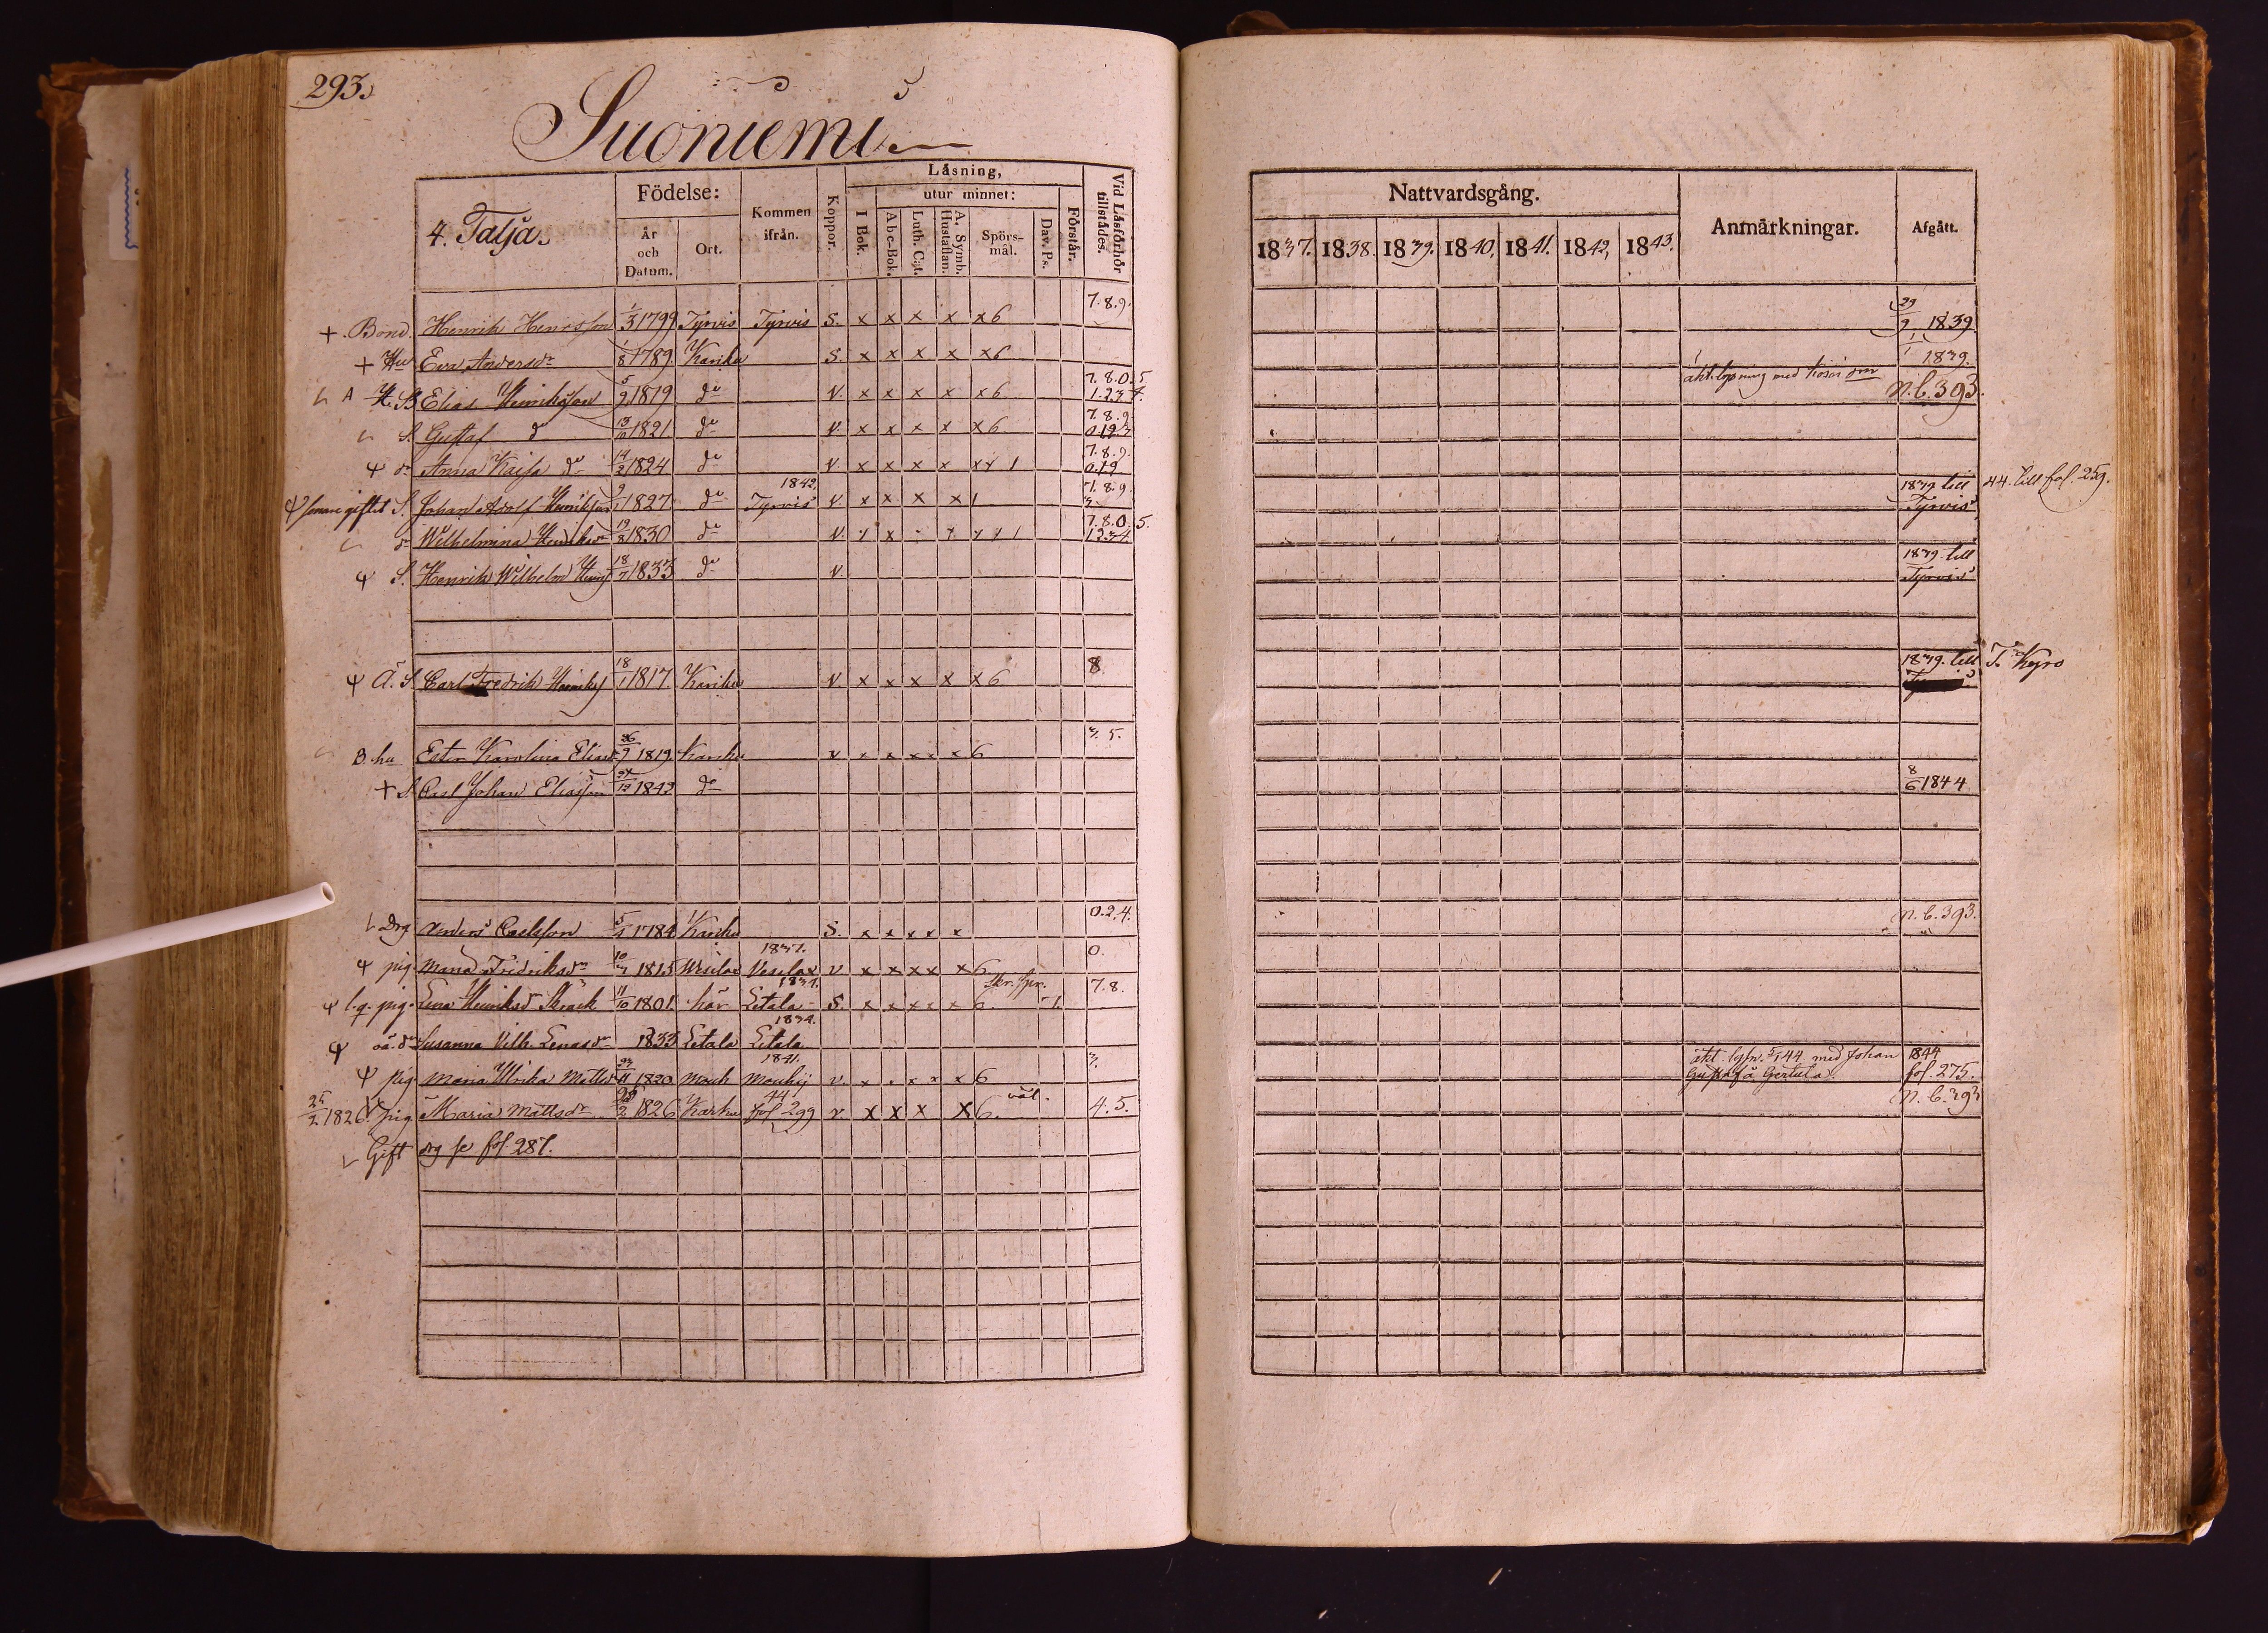 293.
Suoniemi
4. Talja.
Födelse:
År och Datum.
Ort.
Kommen ifrån.
Koppor.
Läsning,
utur minnet:
I Bok.
Abc-Bok.
Luth. Cat.
A. Symb. Hustaflan.
Spörsmål.
Dav. Ps.
Förstår.
Vid Läsförhör tillstädes.
+ Bond. Henrik Henrsson 1/3 1799 Tyrvis Tyrvis S. x x x x x6 7.8.9.
+ Hu Eva Andersdr 1/8 1789 Karku S. x x x x x6
A H. SB Elias Henriksson 5/9 1819 do V. x x x x x6 7.8.0.5 1.2.3.4.
S. Gustaf d 13/10 1821 do V. x x x x x6 7.8.9. 0.1.2.3
Ψ dr Anna Kaisa dr 14/2 1824 do V. x x x x x x 1 7.8.9. 0.1.2
Ψ S. Johan Adolf Henriksson 1827 do 1842. Tyrvis V x x x x 1 7.8.9. 3
dr Wilhelmina Henriksdr 19/8 1830 do V. 7.8.0.5. 1234
Ψ S. Henrik Wilhelm Henrs 18/7 1833 do V.
Ψ S. Carl Fredrik Henriks 18/1 1817 Karku V x x x x x6 8
B. hu Ester Karolina Eliasdr 26/9 1819 Karku v x x x x x 6 3.5.
+ S. Carl Johan Eliasson 1843 do
Drg Anders Carlsson 5/4 1784 Karku S. x x x x x 0.2.4.
Ψ pig. Maria Fridriksdr 1815 Vesilax 1837. Vesilax v x x x x x6 0.
Ψ l.q. pig. Lena Henriksdr Skrack 11/10 1801. här 1837. Letala S. x x x x x 6 skr. 7.8.
Ψ oä. dr Susanna Vilh. Lenasdr 1833 Letala 1834. Letala
Ψ pig Maria Ulrika Mattsdr 23/11 1820 Mouh 1841. Mouhij v. x x x x x 6 3.
25/2 1826 pig Maria Mattsdr 1826 Karku 44 fol 299 v x x x x 6. väl. 4.5.
Gift drg se fol. 287.
Nattvardsgång.
1837. 1838. 1839. 1840. 1841. 1842, 1843.
Anmärkningar.
Afgått.
29/9 1839
1/1 1839.
äkt. lysning med
N.b. 393.
1839 till Tyrvis 44. till fol. 259.
1839. till Tyrvis
1839. till T. Kyro
8/6 1844
N.b. 393.
äkt. lysn. 5/1 44. med Johan 1844
Gustaf å Gertala. fol. 275.
N.b. 393